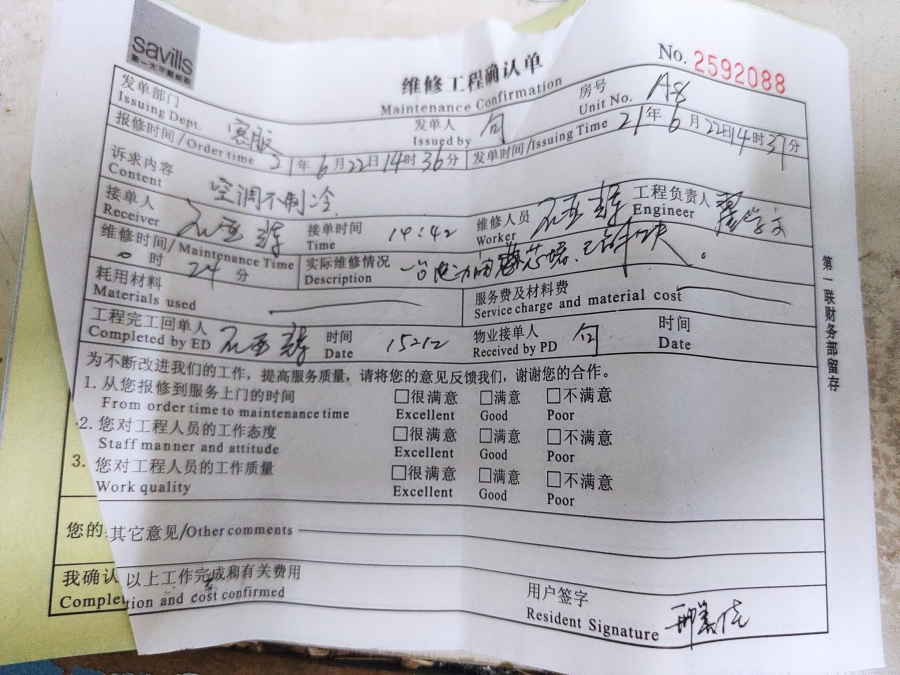 savills
第一太平戴维斯
维修工程确认单
Maintenance Confirmation
No. 2592088
发单部门 客服 发单人 房号 A8
Issuing Dept. Issued by Unit No.
报修时间/Order time 21年6月22日14时36分 发单时间/Issuing Time 21年6月22日14时37分
诉求内容 空调不制冷
Content
接单人 接单时间 14:42 维修人员 工程负责人
Receiver Time Worker Engineer
维修时间/Maintenance Time 0时24分 实际维修情况
Description
耗用材料 服务费及材料费
Materials used Service charge and material cost
工程完工回单人 时间 物业接单人 时间
Completed by ED Date Received by PD Date
为不断改进我们的工作，提高服务质量，请将您的意见反馈我们，谢谢您的合作。
1. 从您报修到服务上门的时间 □很满意 □满意 □不满意
From order time to maintenance time Excellent Good Poor
2. 您对工程人员的工作态度 □很满意 □满意 □不满意
Staff manner and attitude Excellent Good Poor
3. 您对工程人员的工作质量 □很满意 □满意 □不满意
Work quality Excellent Good Poor
您的其它意见/Other comments
我确认以上工作完成和有关费用
Completion and cost confirmed
用户签字
Resident Signature
第一联财务部留存